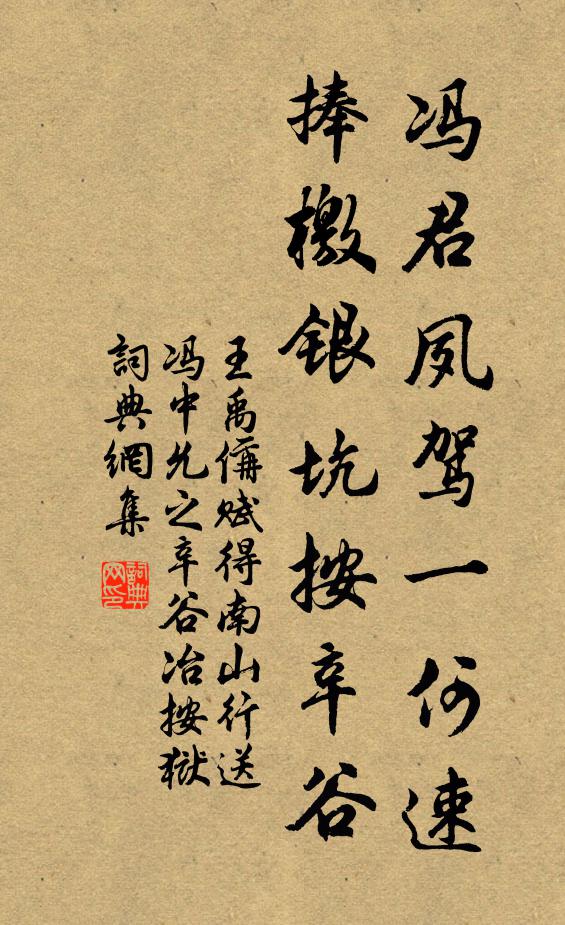 冯君夙驾一何速
捧檄银坑按辛谷
王禹偁赋得南山行送
冯中允之辛谷冶按獄
詞典網集
詞典网印